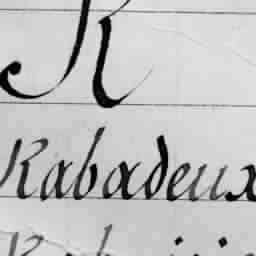 R
Rabadeux